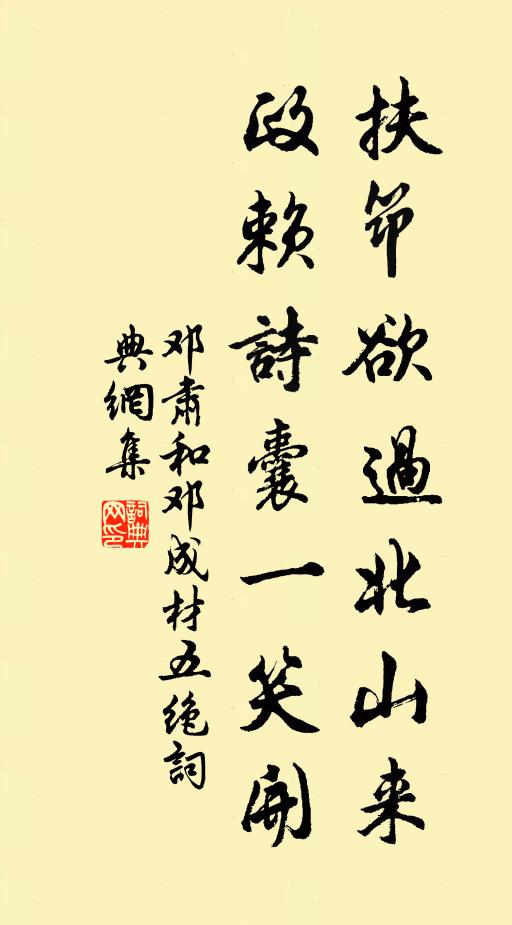 扶筇欲過北山来
政賴詩囊一笑開
邓肃和邓成材五绝詞
典網集
詞典网印